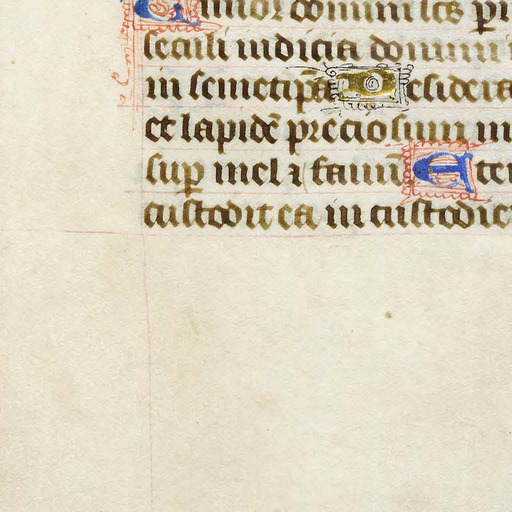 Timor domini sc̄s p
seculi iudicia domini
in semetip̄a Desidera
et lapidē preciosum m
sup mel ⁊ fauū Et
custodit ea in custodie